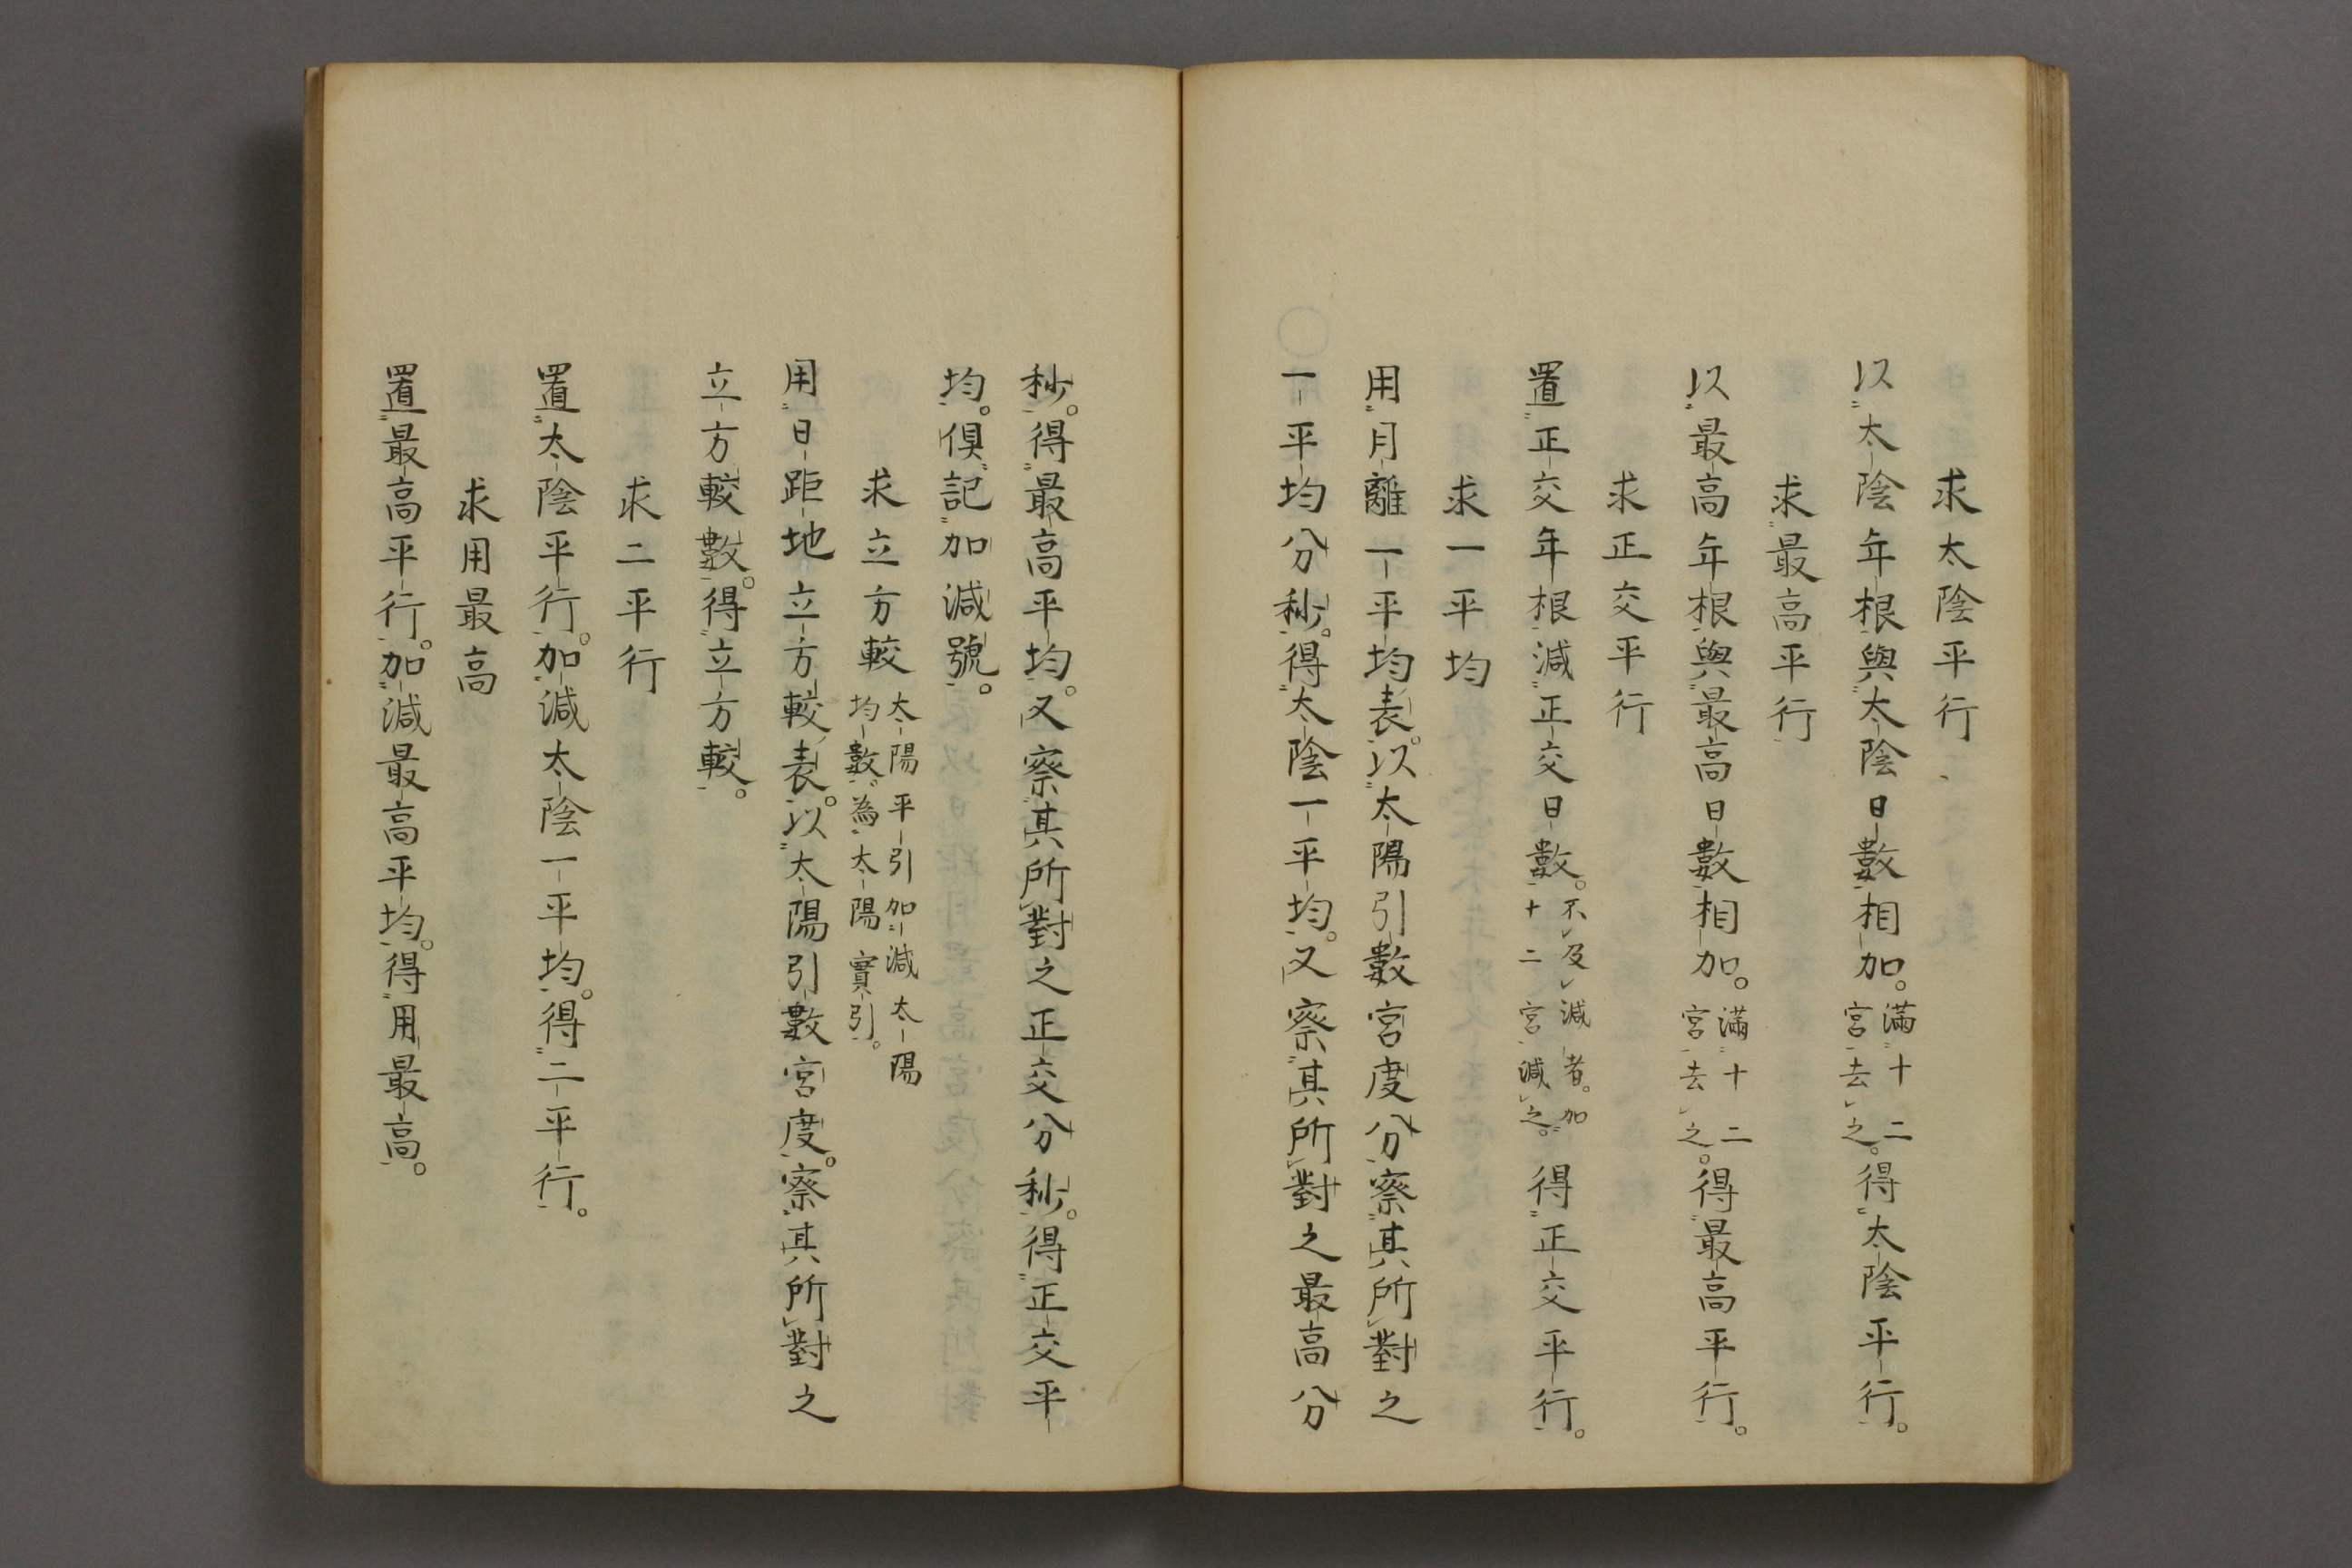 求太陰平行
以太陰年根與太陰日數相加。滿十二宮去之。得太陰平行。
求最高平行
以最高年根與最高日數相加。滿十二宮去之。得最高平行。
求正交平行
置正交年根減正交日數。不及減者。加十二宮減之。得正交平行。
求一平均
用月離一平均表。以太陽引數宮度分察其所對之
一平均分秒。得太陰一平均。又察其所對之最高分
秒。得最高平均。又察其所對之正交分秒。得正交平
均。俱記加減號。
求立方較 太陽平引加減太陽均數。為太陽實引。
用日距地立方較表。以太陽引數宮度。察其所對之
立方較數。得立方較。
求二平行
置太陰平行。加減太陰一平均。得二平行。
求用最高
置最高平行。加減最高平均。得用最高。